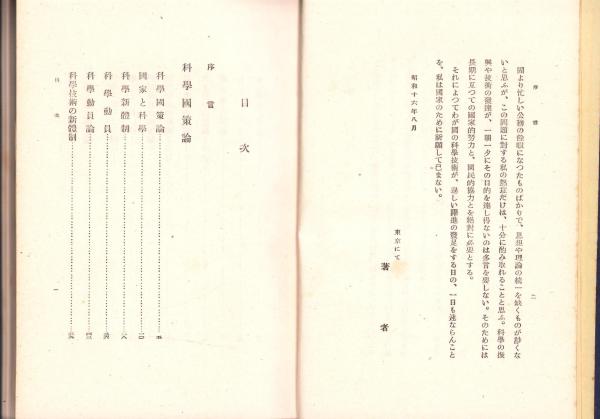 序言
二
固より忙しい公務の餘暇になつたものばかりで、思想や理論の統一を缺くものが尠くな
いと思ふが、この問題に對する私の熱意だけは、十分に酌み取れることと思ふ。科學の振
興や技術の發達が、一朝一夕にその目的を達し得ないのは多言を要しない。そのためには
長期に亙つての國家的努力と、國民的協力とを絶對に必要とする。
それによつてわが國の科學技術が、逞しい躍進の發足をする日の、一日も速ならんこと
を、私は國家のために祈願して已まない。
昭和十六年八月
東京にて
著者
目次
序言
科學國策論
科學國策論
國家と科學
科學新體制
科學動員
科學動員論
科學技術の新體制
目次
一